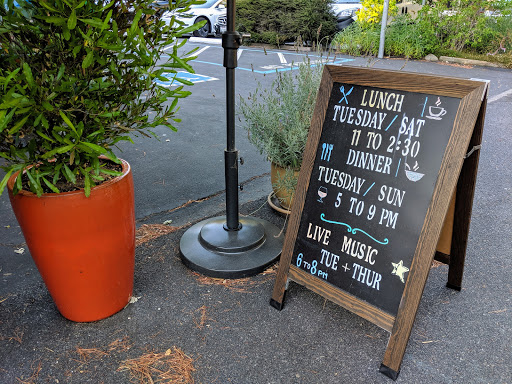 LUNCH
TUESDAY / SAT
11 TO 2:30
DINNER
TUESDAY / SUN
5 TO 9 PM
LIVE MUSIC
TUE + THUR
6 TO 8 PM